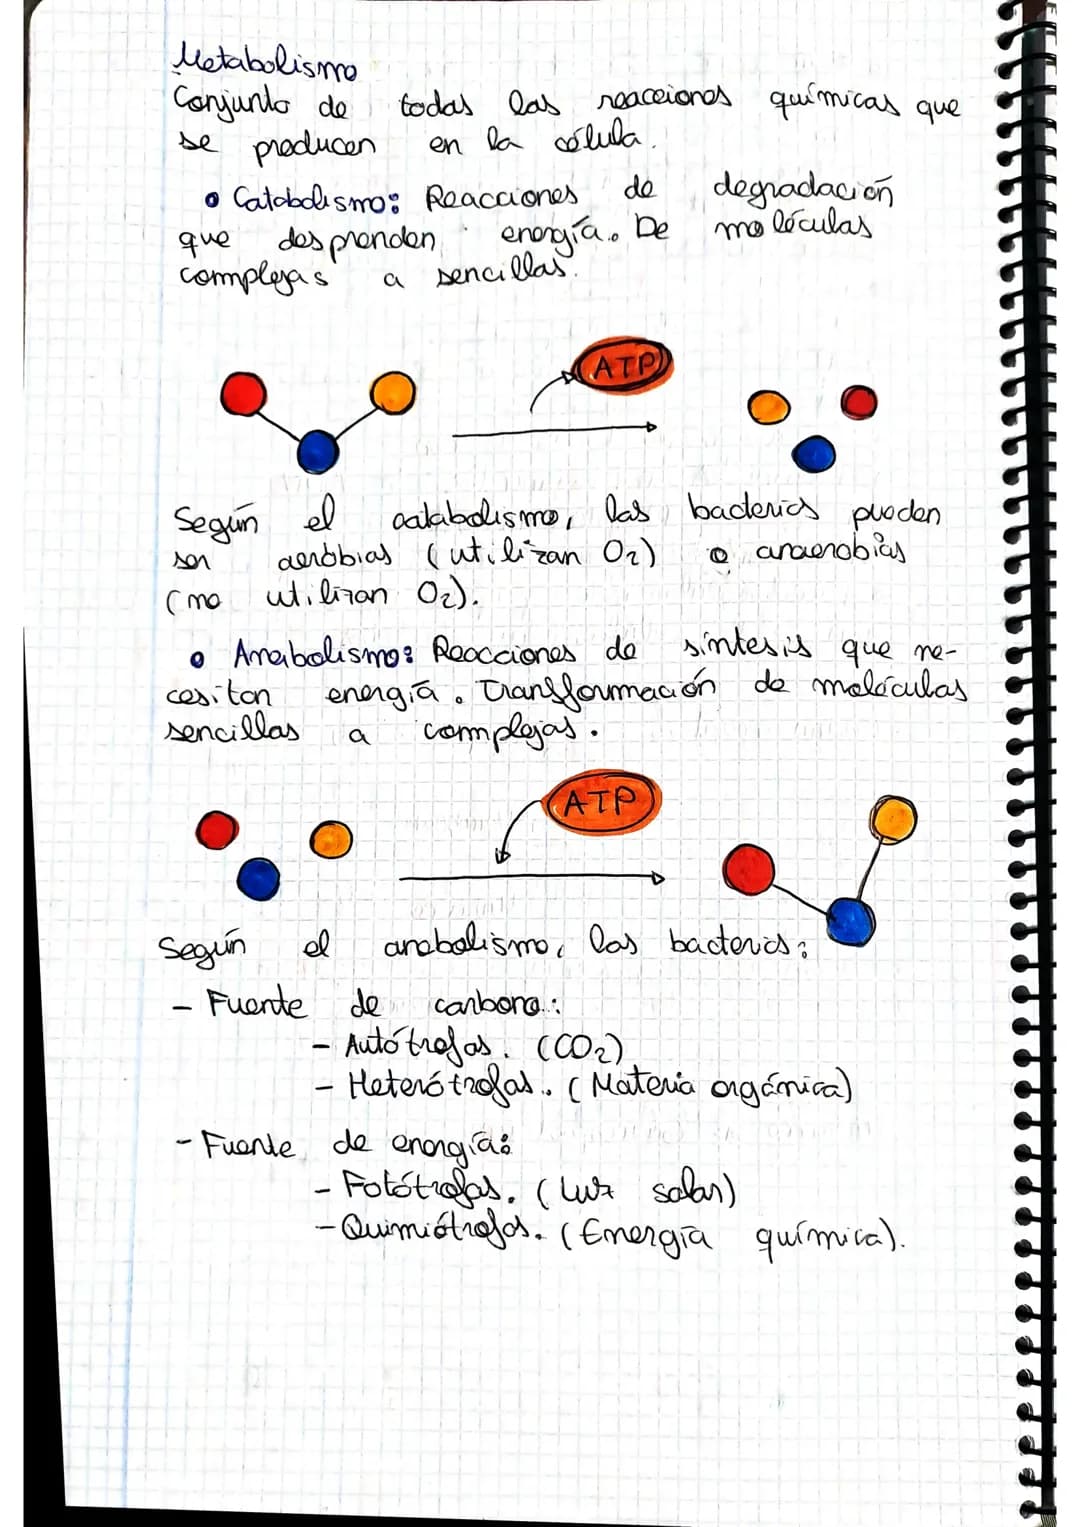 Metabolismo
Conjunto de todas las reacciones químicas que
se producen en la célula.
• Catabolismo: Reacciones de degradación
que desprenden energía. De moléculas
complejas a sencillas.
ATP
Según el catabolismo, las bacterias pueden
ser aeróbias (utilizan O₂) o anaerobias
(no utilizan O₂).
• Anabolismo: Reacciones de síntesis que ne-
cesitan energía. Transformación de moléculas
sencillas a complejas.
ATP
Según el anabolismo, las bacterias:
- Fuente de carbono:
- Autótrofas. (CO₂)
- Heterótrofas. (Materia orgánica)
- Fuente de energía:
- Fotótrofas. (Luz solar)
- Quimiótrofos. (Energía química).